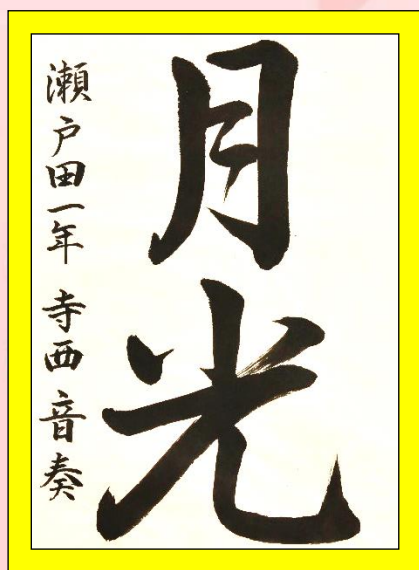 月光
瀬戸田一年 寺西音奏